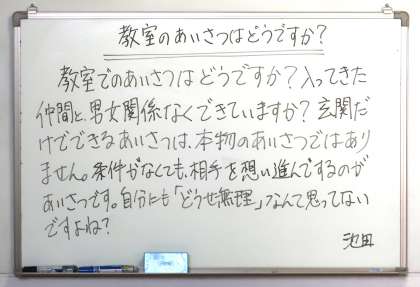 教室のあいさつはどうですか?
教室でのあいさつはどうですか?入ってきた
仲間と、男女関係なくできていますか?玄関だ
けでできるあいさつは、本物のあいさつではあり
ません。条件がなくても、相手を想い進んでするのが
あいさつです。自分にも「どうせ無理」なんて思ってない
ですよね?
池田